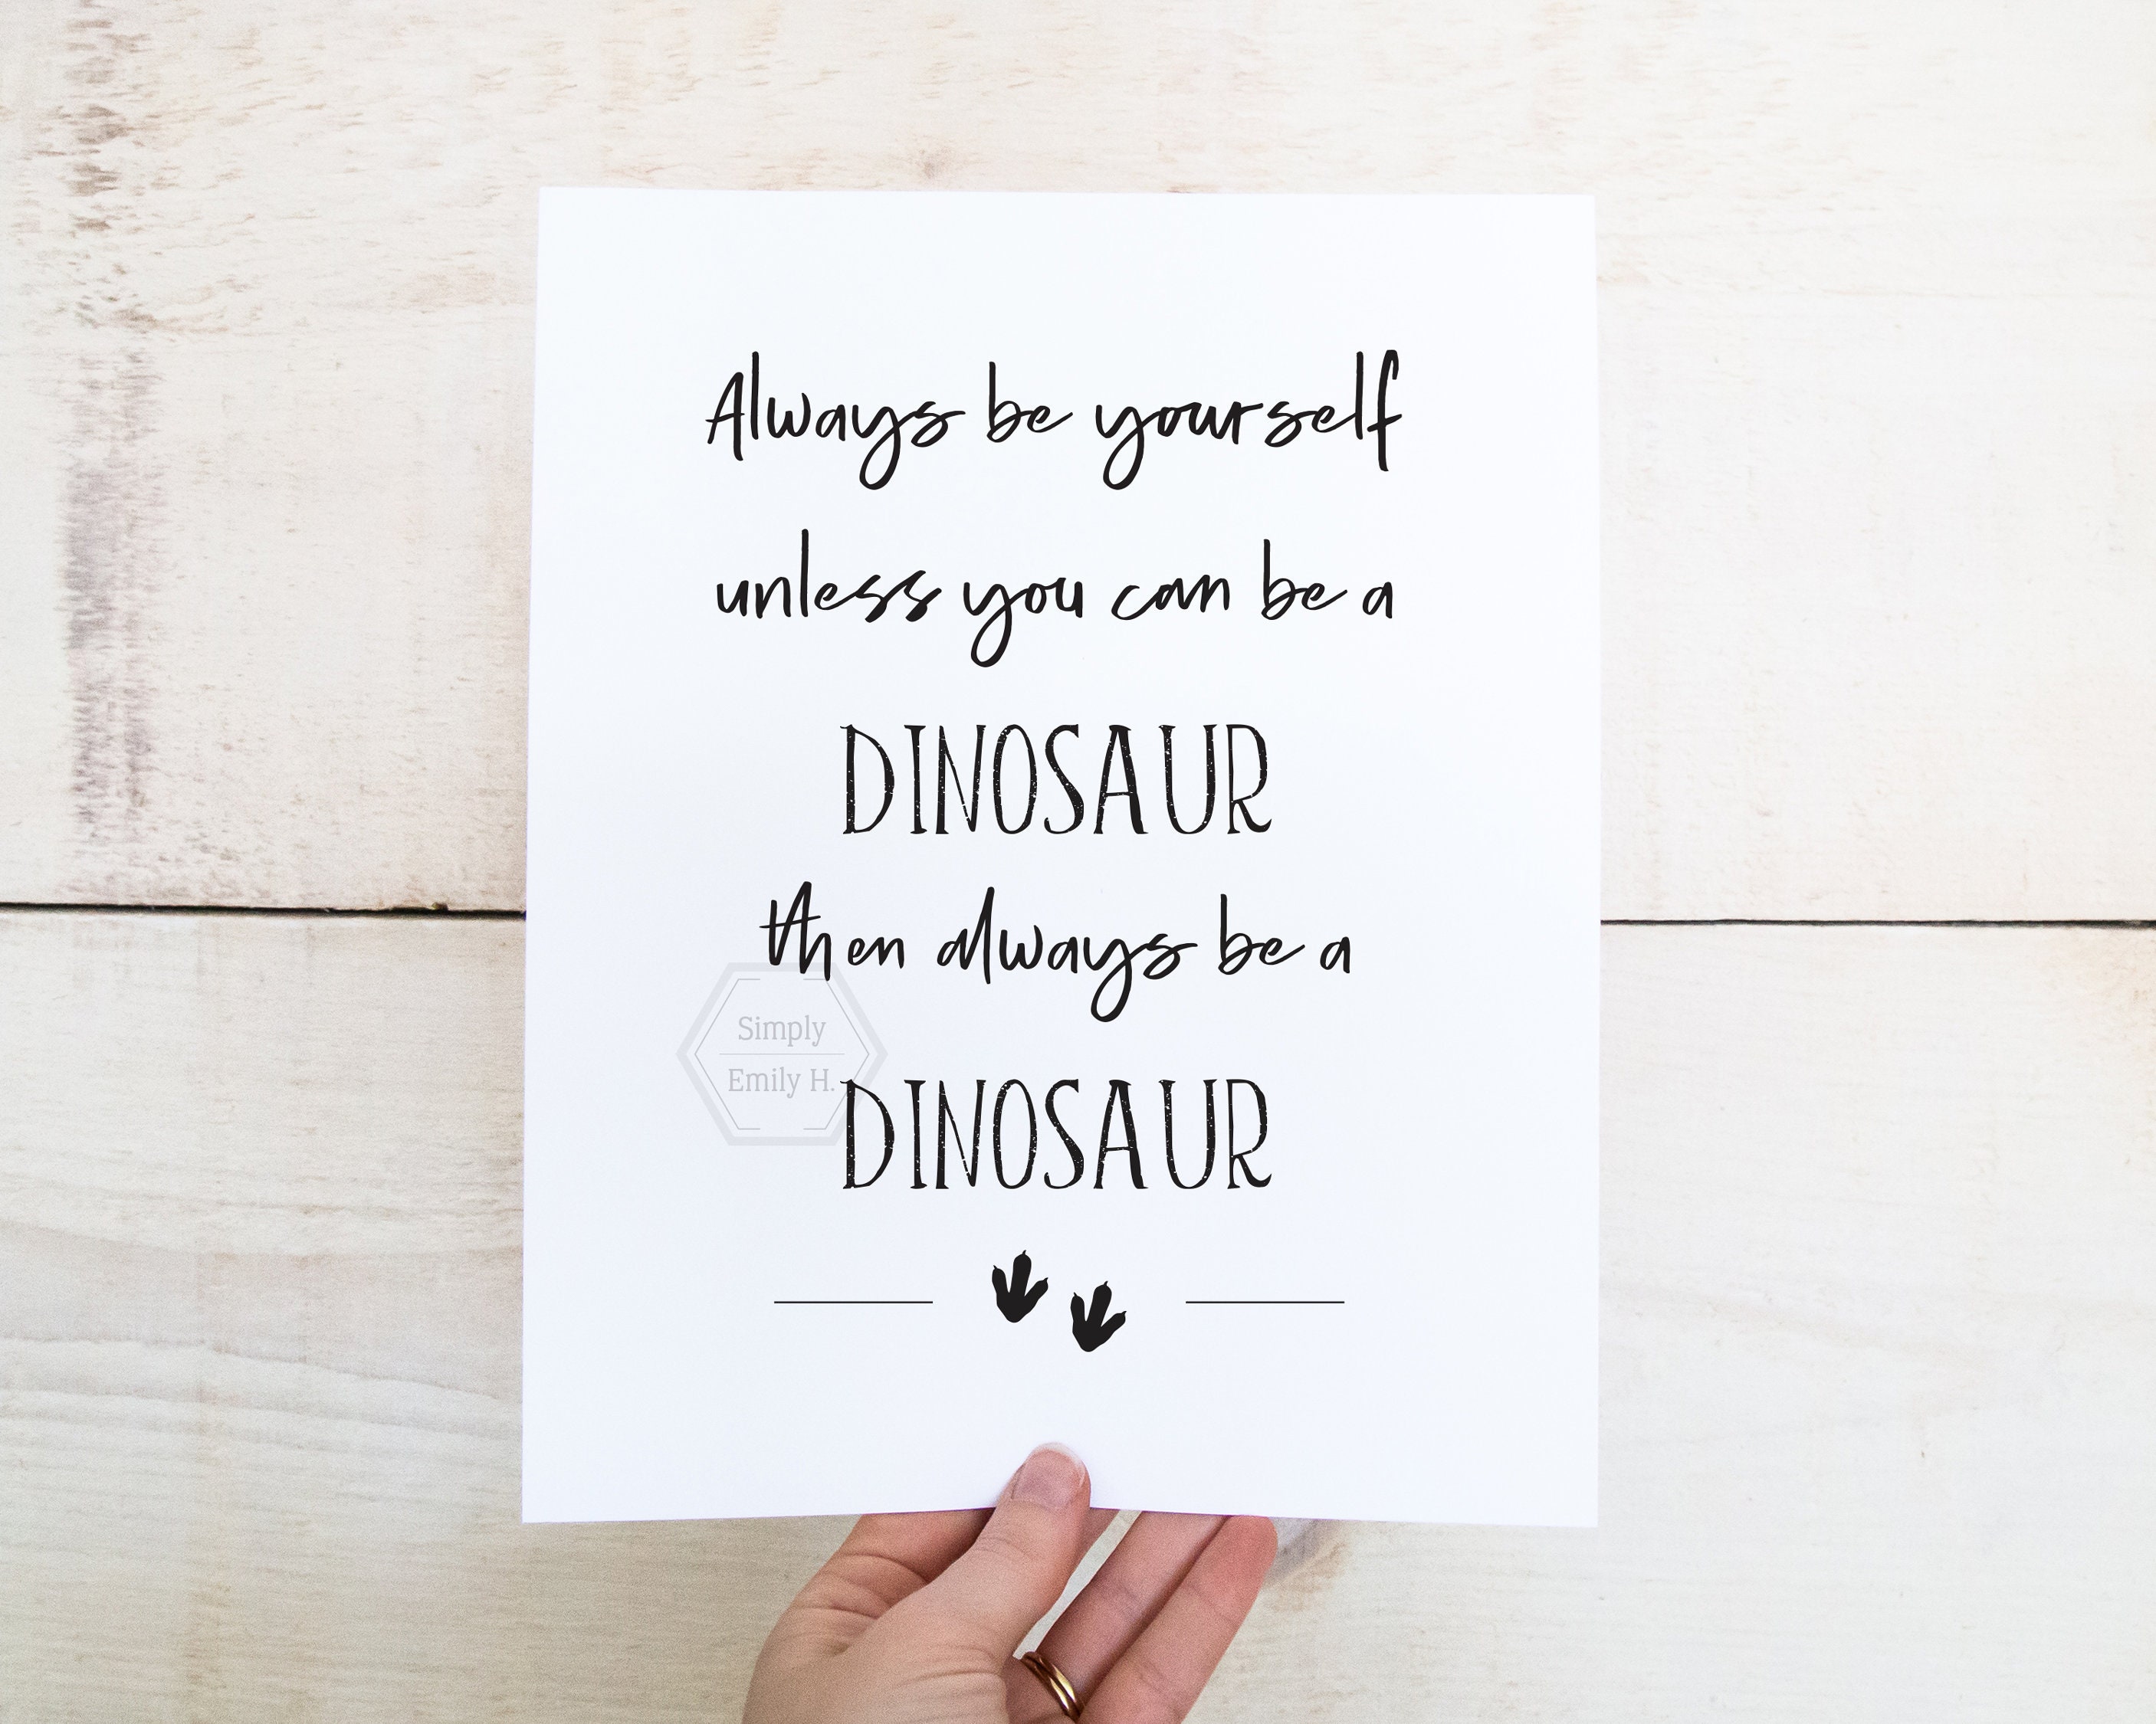 Always be yourself
unless you can be a
DINOSAUR
then always be a
Simply
Emily H.
DINOSAUR